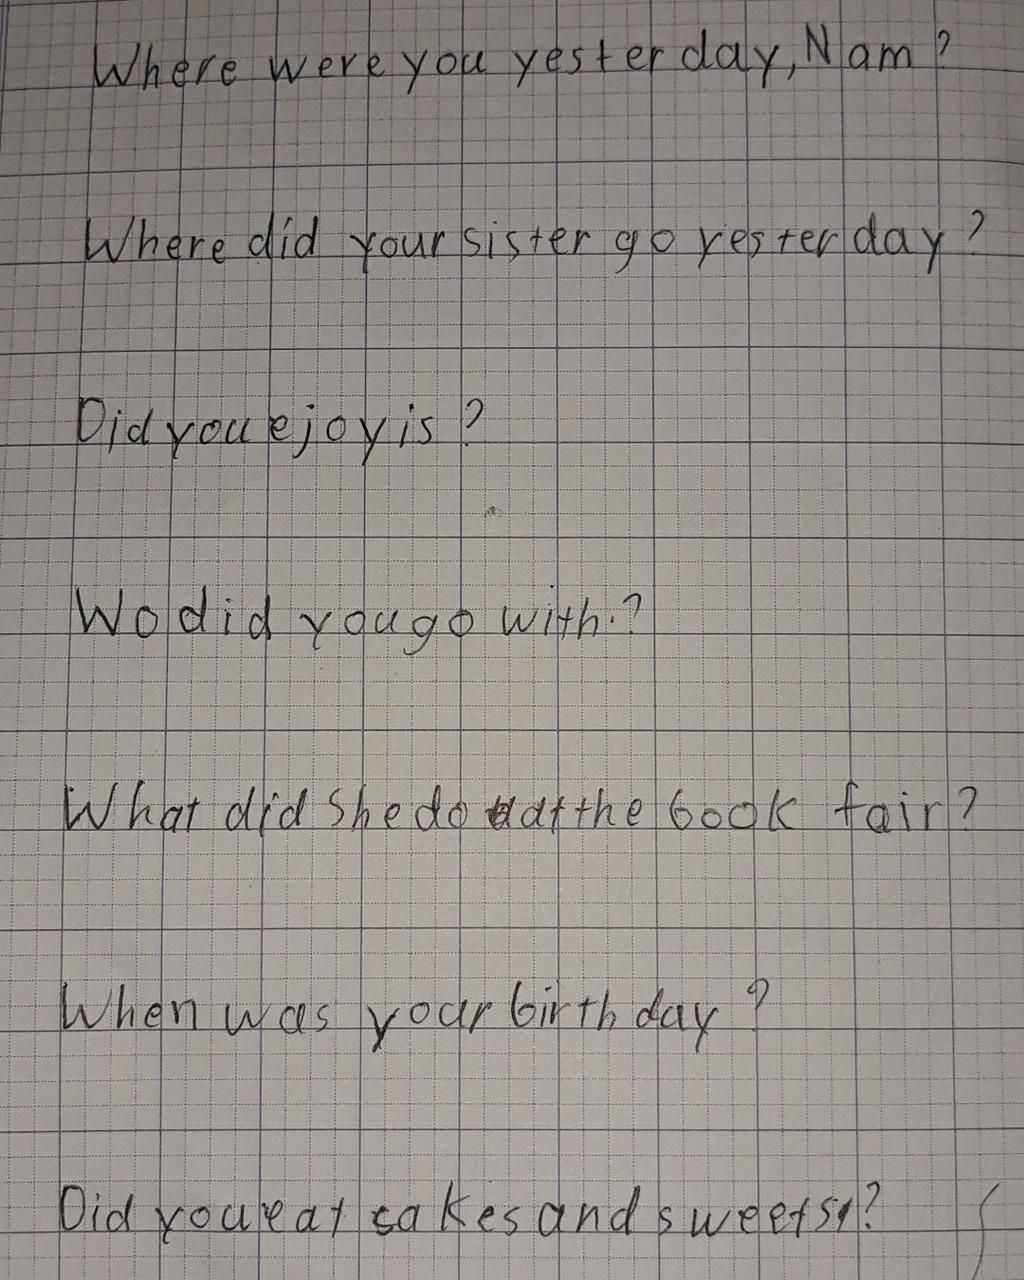 Where were you yesterday, Nam?
Where did your sister go yesterday?
Did you ejoy is?
Wo did you go with?
What did she do at the book fair?
When was your birthday?
Did you eat cakes and sweets?